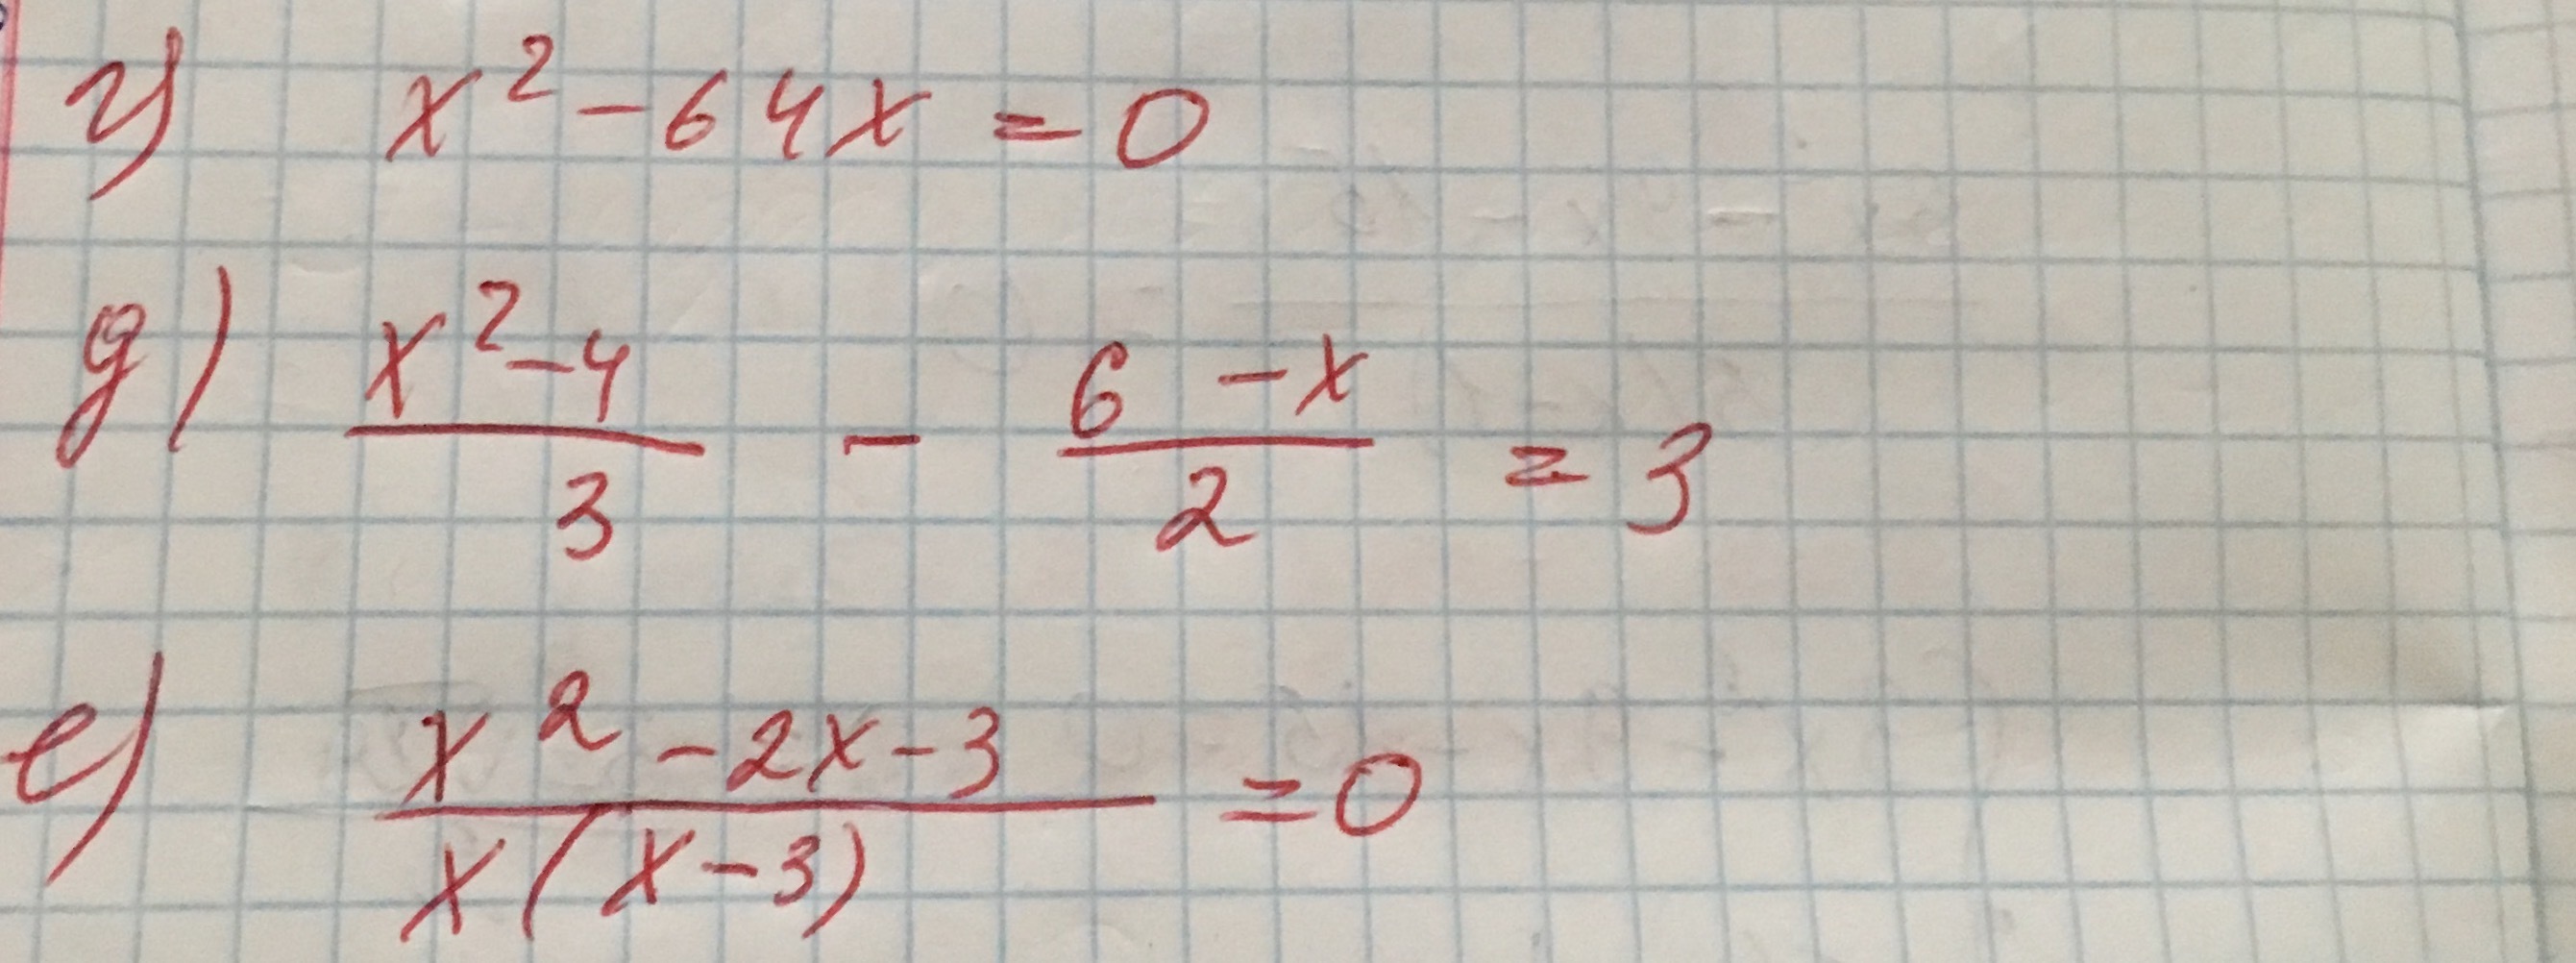 г) x² - 64x = 0
д) (x² - 4)/3 - (6 - x)/2 = 3
е) (x² - 2x - 3)/(x(x - 3)) = 0